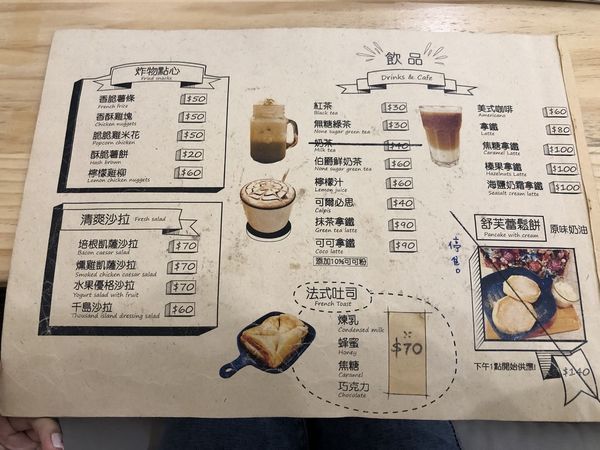 炸物點心
Fried snacks
香脆薯條 $50
French frice
香酥雞塊 $50
Chicken nuggets
脆脆雞米花 $50
Popcorn chicken
酥脆薯餅 $20
Hash brown
檸檬雞柳 $60
Lemon chicken nuggets
清爽沙拉 Fresh salad
培根凱薩沙拉 $70
Bacon caesar salad
燻雞凱薩沙拉 $70
Smoked chicken caesar salad
水果優格沙拉 $70
Yogurt salad with fruit
千島沙拉 $60
Thousand island dressing salad
飲品
Drinks & Cafe
紅茶 $30
Black tea
無糖綠茶 $30
None sugar green tea
奶茶 $40
Milk tea
伯爵鮮奶茶 $60
None sugar green tea
檸檬汁 $60
Lemon juice
可爾必思 $40
Calpis
抹茶拿鐵 $90
Green tea latte
可可拿鐵 $90
Coco latte
添加10%可可粉
美式咖啡 $60
Americano
拿鐵 $80
Latte
焦糖拿鐵 $100
Caramel Latte
榛果拿鐵 $100
Hazelnuts Latte
海鹽奶霜拿鐵 $100
Seasalt cream latte
法式吐司
French Toast
煉乳
Condensed milk
蜂蜜
Honey
焦糖
Caramel
巧克力
Chocolate
$70
停售
舒芙蕾鬆餅 原味奶油
Pancake with cream
下午1點開始供應!
$140